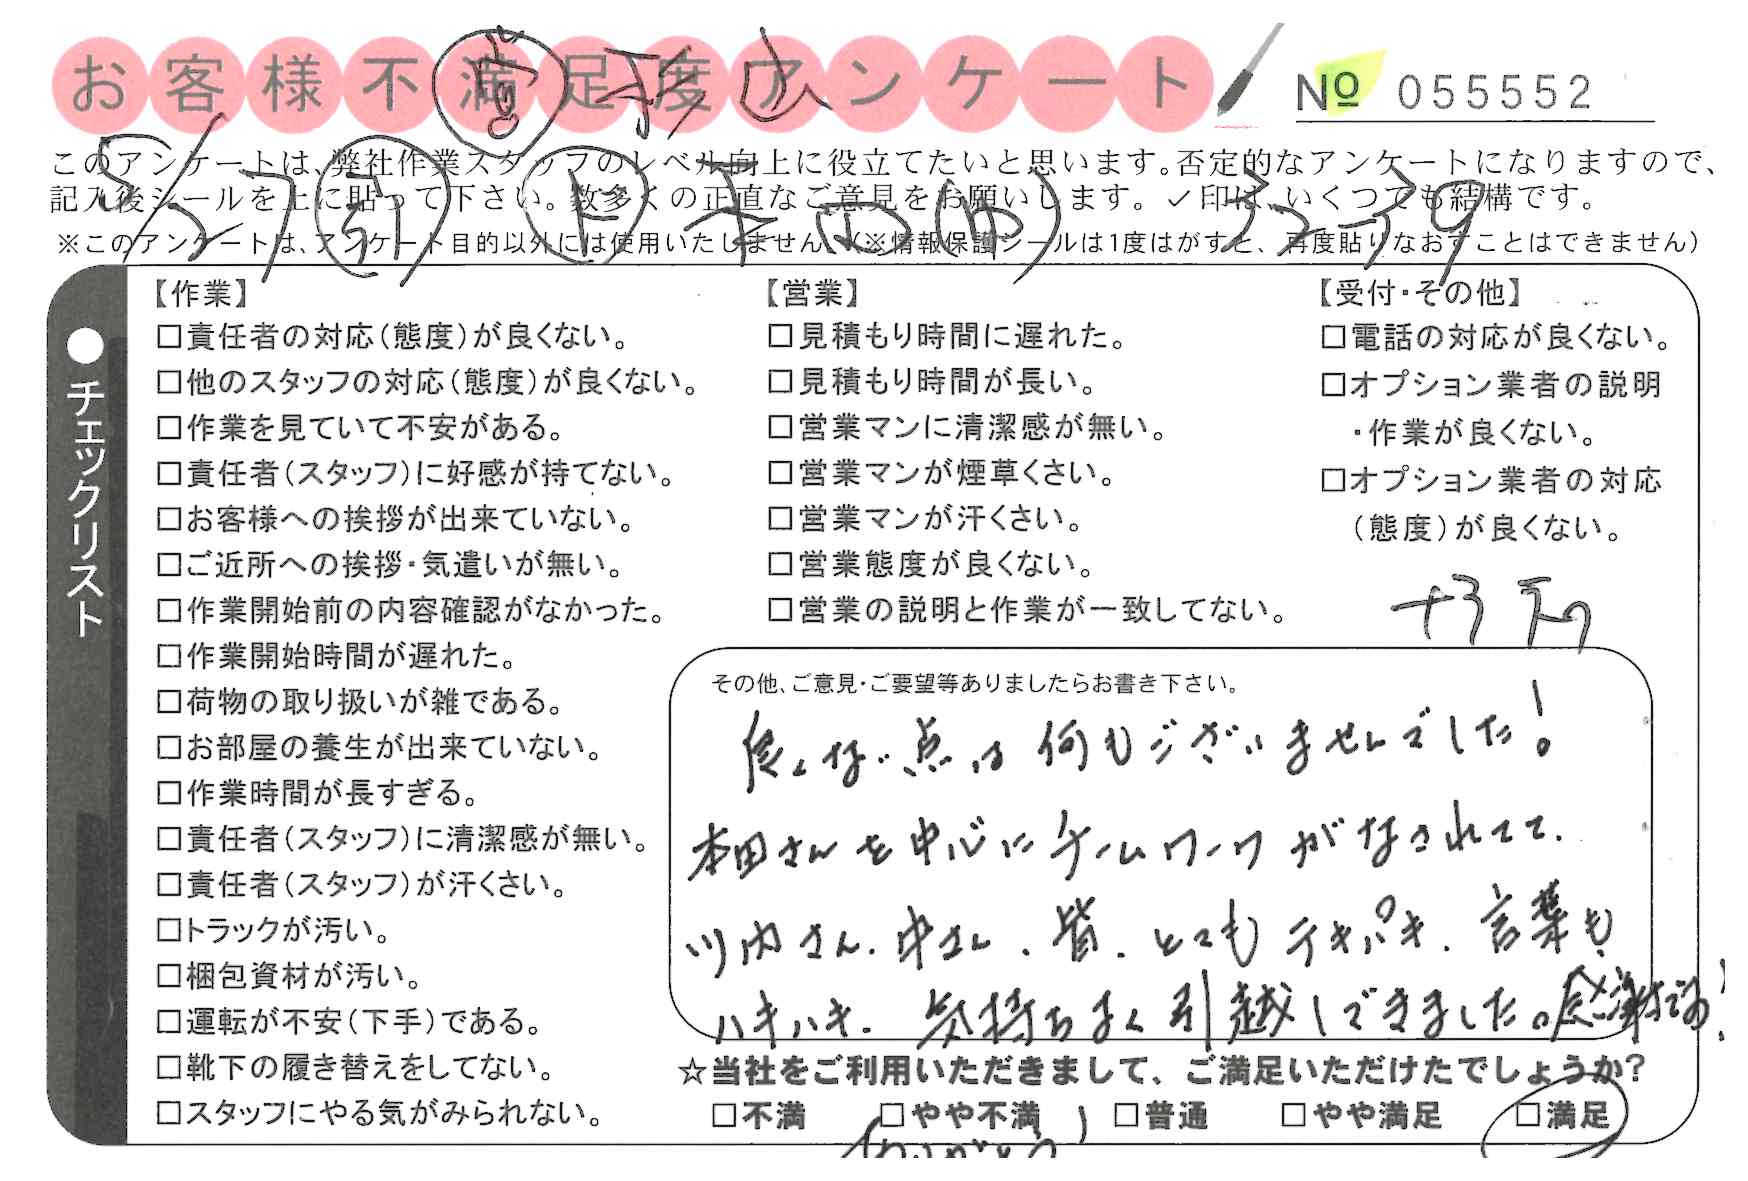 お客様不満足度アンケート
№ 055552
このアンケートは、弊社作業スタッフのレベル向上に役立てたいと思います。否定的なアンケートになりますので、
記入後シールを上に貼って下さい。数多くの正直なご意見をお願いします。✓印は、いくつでも結構です。
※このアンケートは、アンケート目的以外には使用いたしません。(※情報保護シールは1度はがすと、再度貼りなおすことはできません)
5/27 引
●チェックリスト
【作業】
□責任者の対応(態度)が良くない。
□他のスタッフの対応(態度)が良くない。
□作業を見ていて不安がある。
□責任者(スタッフ)に好感が持てない。
□お客様への挨拶が出来ていない。
□ご近所への挨拶・気遣いが無い。
□作業開始前の内容確認がなかった。
□作業開始時間が遅れた。
□荷物の取り扱いが雑である。
□お部屋の養生が出来ていない。
□作業時間が長すぎる。
□責任者(スタッフ)に清潔感が無い。
□責任者(スタッフ)が汗くさい。
□トラックが汚い。
□梱包資材が汚い。
□運転が不安(下手)である。
□靴下の履き替えをしてない。
□スタッフにやる気がみられない。
【営業】
□見積もり時間に遅れた。
□見積もり時間が長い。
□営業マンに清潔感が無い。
□営業マンが煙草くさい。
□営業マンが汗くさい。
□営業態度が良くない。
□営業の説明と作業が一致してない。
【受付・その他】
□電話の対応が良くない。
□オプション業者の説明
・作業が良くない。
□オプション業者の対応
(態度)が良くない。
その他、ご意見・ご要望等ありましたらお書き下さい。
良くない点は何もございませんでした!
本田さんを中心にチームワークがなされてて、
川内さん、中さん、皆、とてもテキパキ、言葉も
ハキハキ、気持ちよく引越しできました。感謝です!
☆当社をご利用いただきまして、ご満足いただけたでしょうか?
□不満 □やや不満 □普通 □やや満足 □満足
ありがとう!